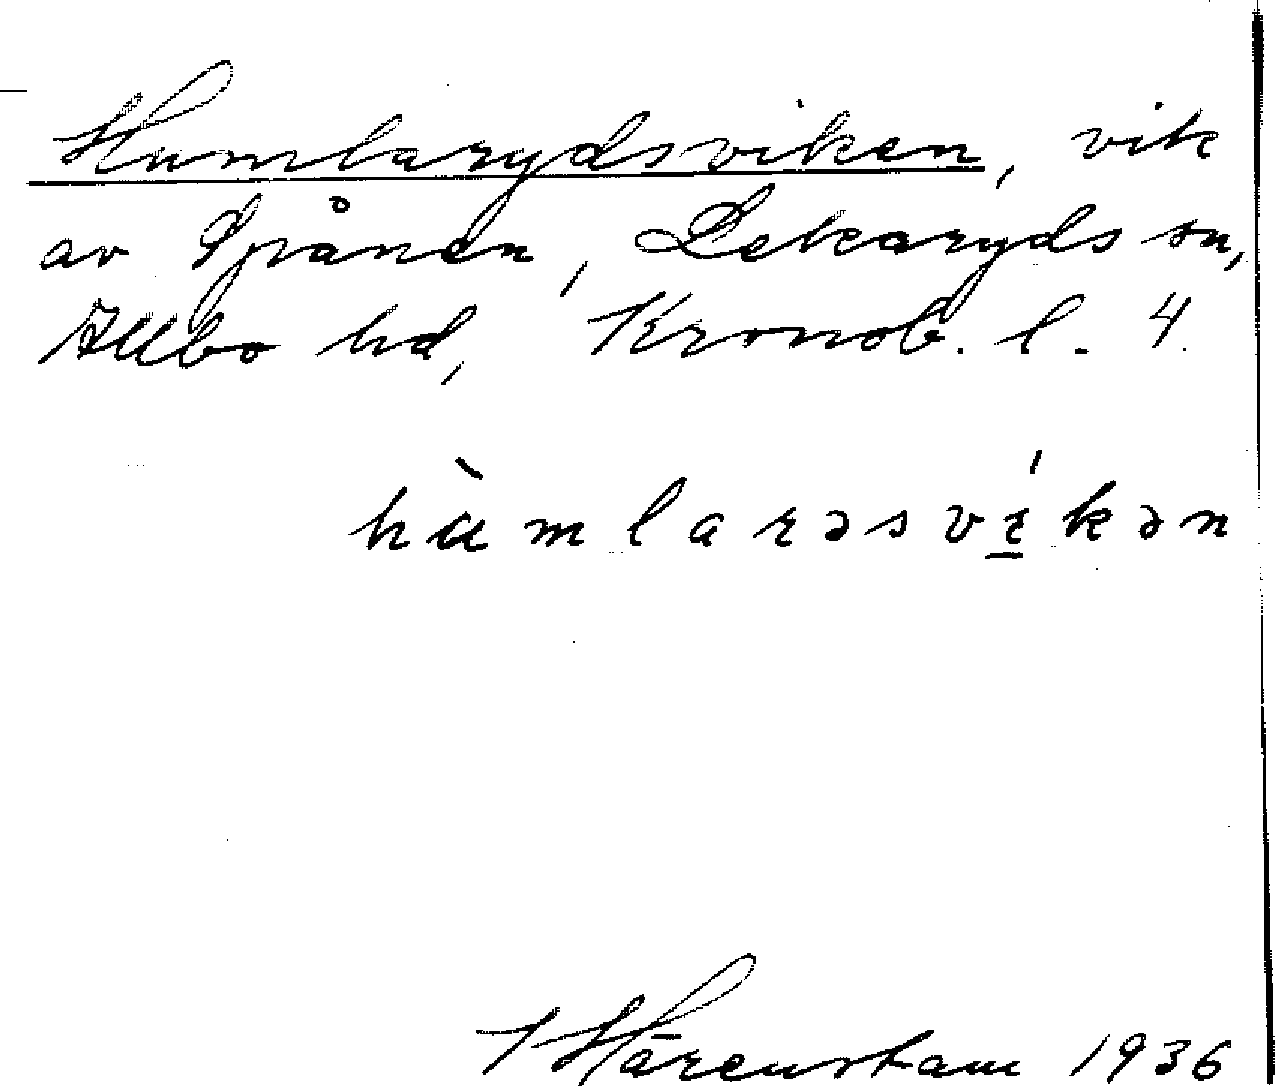 Humlarydsviken, vik
av Spånen, Lekaryds sn,
Allbo hd, Kronob. l. 4.
hùmlarəsví̲kən
Härenstam 1936